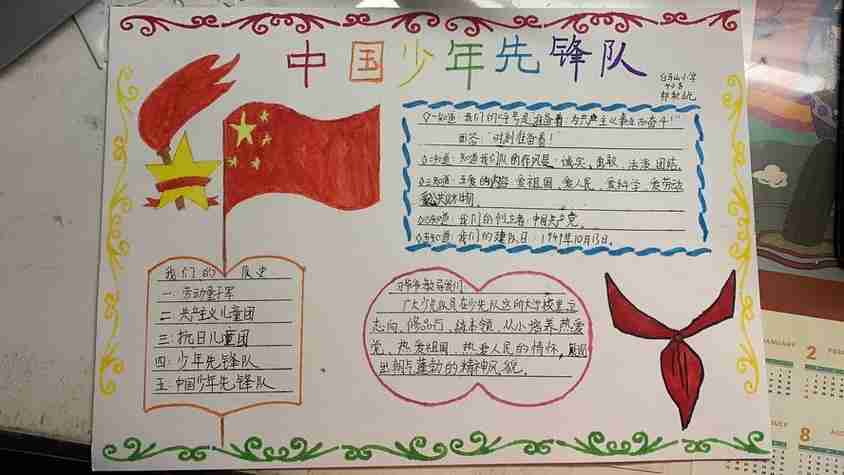 中国少年先锋队
一知道：我们的呼号是"准备着，为共产主义事业而奋斗！"
回答："时刻准备着！"
二知道：知道我们队的作风是：诚实、勇敢、活泼、团结。
三知道：五爱的内容：爱祖国、爱人民、爱科学、爱劳动
爱公共财物。
四知道：我们的创立者：中国共产党。
五知道：我们的建队日：1949年10月13日。
我们的队史
一：劳动童子军
二：共产主义儿童团
三：抗日儿童团
四：少年先锋队
五：中国少年先锋队
习爷爷教导我们
广大少先队员在少先队这所大学校里立
志向、修品行、练本领、从小培养热爱
党、热爱祖国、热爱人民的情怀，展现
出朝气蓬勃的精神风貌。
JANUARY
2
FEBRUARY
8